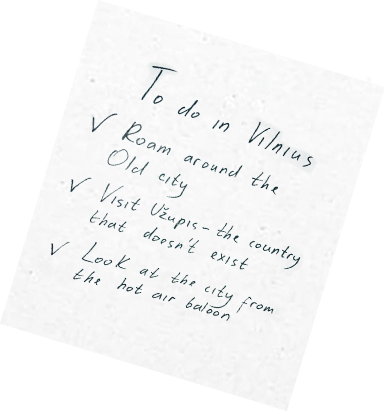 To do in Vilnius
✓ Roam around the
Old city
✓ Visit Užupis – the country
that doesn't exist
✓ Look at the city from
the hot air baloon